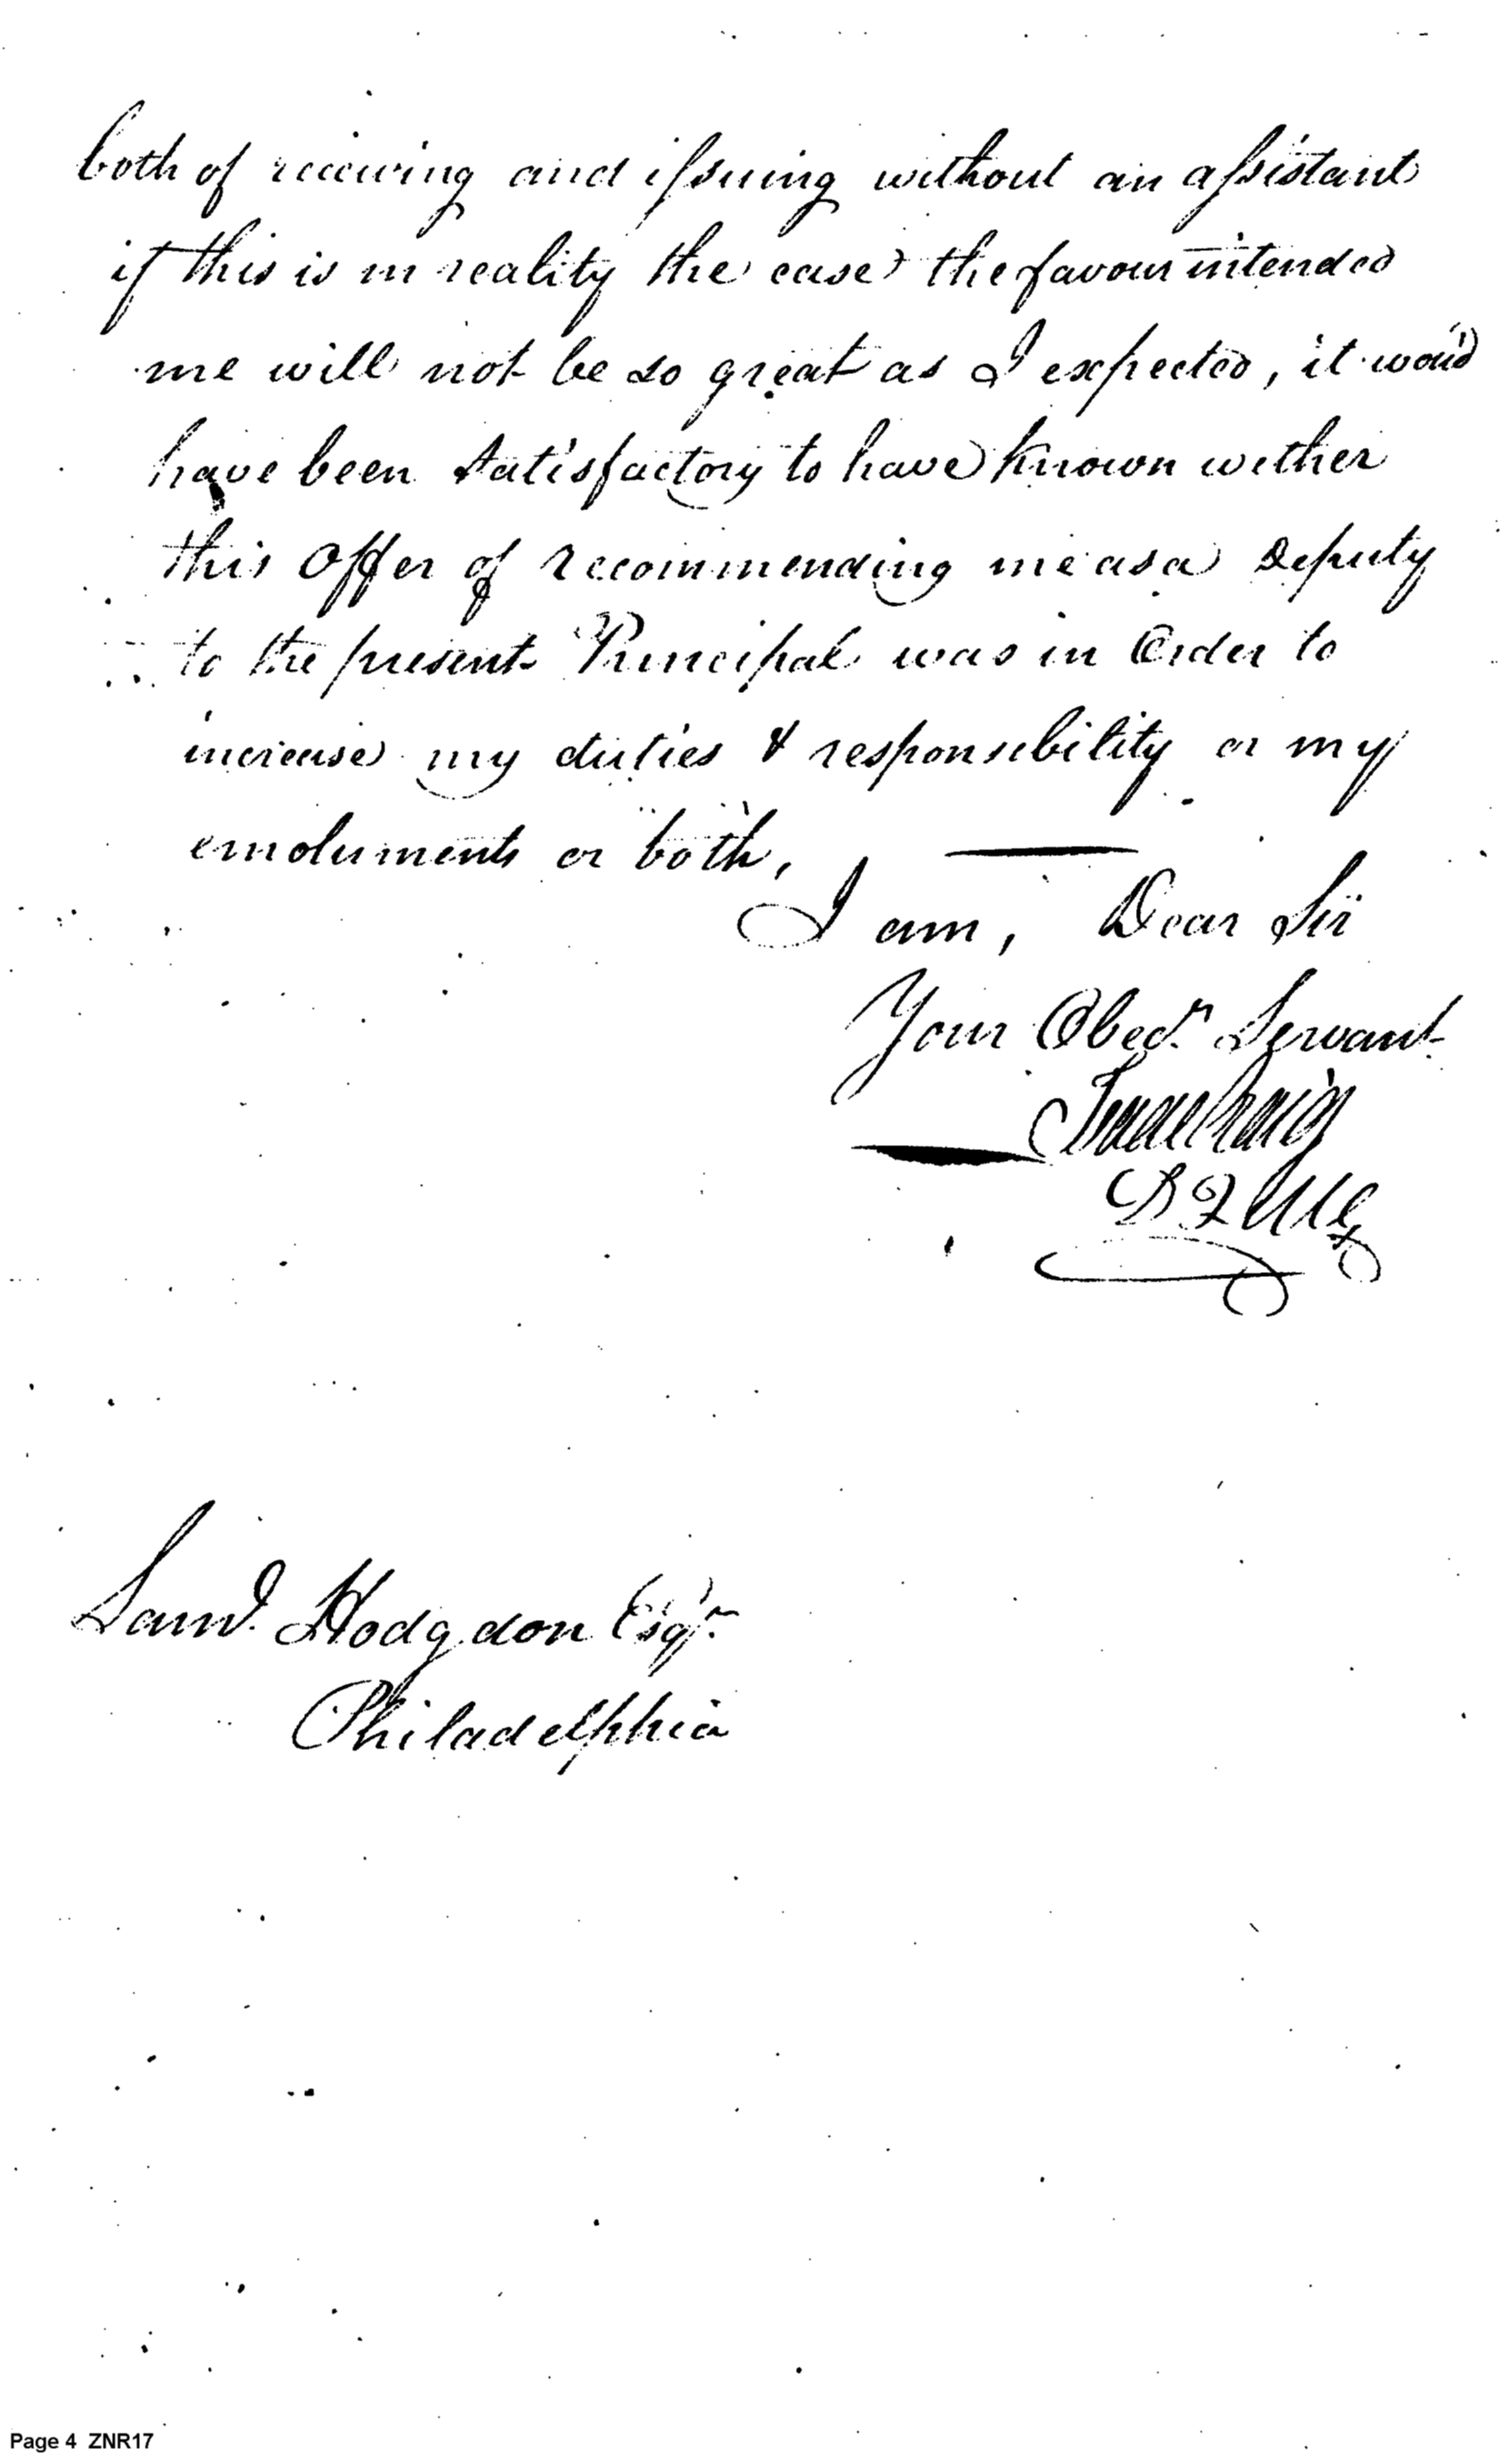 both of receiving and issuing without an assistant
if this is in reality the case the favour intended
me will not be so great as I expected, it wou'd
have been satisfactory to have known wether
this Offer of recommending me as a Deputy
to the present Principal was in Order to
increase my duties & responsibility or my
emoluments or both,
I am, Dear Sir
Your Obedt. Servant
Isaac Craig
D Q M G
Saml. Hodgdon Esqr.
Philadelphia
Page 4 ZNR17